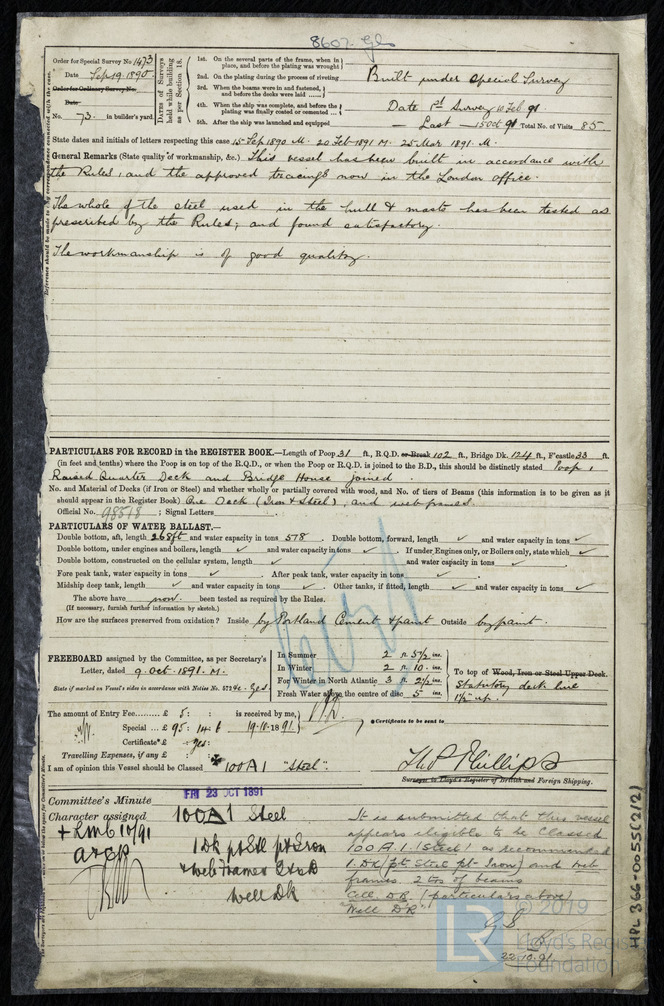 8607. Gls
Order for Special Survey No. 1473
Date Sep 19 1890
Order for Ordinary Survey No.
Date
No. 73 in builder's yard.
Dates of Surveys held while building as per Section 18.
1st. On the several parts of the frame, when in place, and before the plating was wrought
2nd. On the plating during the process of riveting
3rd. When the beams were in and fastened, and before the decks were laid
4th. When the ship was complete, and before the plating was finally coated or cemented
5th. After the ship was launched and equipped
Built under Special Survey
Date 1st Survey 10 Feb 91
Last 15 Oct 91 Total No. of Visits 85.
State dates and initials of letters respecting this case 15 Sep 1890 M. 20 Feb 1891 M. 25 Mar 1891. M.
General Remarks (State quality of workmanship, &c.) This vessel has been built in accordance with
the Rules, and the approved tracings now in the London office.
The whole of the steel used in the hull & masts has been tested as
prescribed by the Rules; and found satisfactory.
The workmanship is of good quality.
PARTICULARS FOR RECORD in the REGISTER BOOK.—Length of Poop 31 ft., R.Q.D. or Break 102 ft., Bridge Dk. 124 ft., F'castle 33 ft.
(in feet and tenths) where the Poop is on top of the R.Q.D., or when the Poop or R.Q.D. is joined to the B.D., this should be distinctly stated Poop,
Raised Quarter Deck and Bridge House joined.
No. and Material of Decks (if Iron or Steel) and whether wholly or partially covered with wood, and No. of tiers of Beams (this information is to be given as it
should appear in the Register Book) One Deck (Iron & Steel), and web frames.
Official No. 98518; Signal Letters
PARTICULARS OF WATER BALLAST.—
Double bottom, aft, length 268ft and water capacity in tons 578. Double bottom, forward, length ✓ and water capacity in tons ✓
Double bottom, under engines and boilers, length ✓ and water capacity in tons ✓. If under Engines only, or Boilers only, state which ✓
Double bottom, constructed on the cellular system, length ✓ and water capacity in tons ✓.
Fore peak tank, water capacity in tons ✓. After peak tank, water capacity in tons ✓.
Midship deep tank, length ✓ and water capacity in tons ✓. Other tanks, if fitted, length ✓ and water capacity in tons ✓
The above have now been tested as required by the Rules.
(If necessary, furnish further information by sketch.)
How are the surfaces preserved from oxidation? Inside by Portland Cement & paint Outside by paint.
FREEBOARD assigned by the Committee, as per Secretary's
Letter, dated 9 Oct 1891. M.
State if marked on Vessel's sides in accordance with Notice No. Yes.
In Summer 2 ft. 5½ ins.
In Winter 2 ft. 10 ins.
For Winter in North Atlantic 3 ft. 2½ ins.
Fresh Water above the centre of disc 5 ins.
To top of Wood, Iron or Steel Upper Deck.
Statutory deck line
1½" up.
The amount of Entry Fee £ 5: is received by me,
Special £ 95: 14: 6 19.10.1891
Certificate* : yes:
Travelling Expenses, if any £
*Certificate to be sent to
I am of opinion this Vessel should be Classed 100A1 "Steel".
Th. P. Phillips
Surveyor to Lloyd's Register of British and Foreign Shipping.
Committee's Minute
FRI 23 OCT 1891
Character assigned 100A1 Steel
+LMC 10/91
1 Dk pt Stl pt Iron
& Web Frames
Well Dk
It is submitted that this vessel
appears eligible to be Classed
100A.1. (Steel) as recommended
1.Dk (pt Steel pt Iron) and Web
frames. 2 trs of beams
Cell. D.B. (particulars above)
Well Dk
22.10.91
HPL 366-0055(2/2)
LR
© 2019
Lloyd's Regist
Foundation